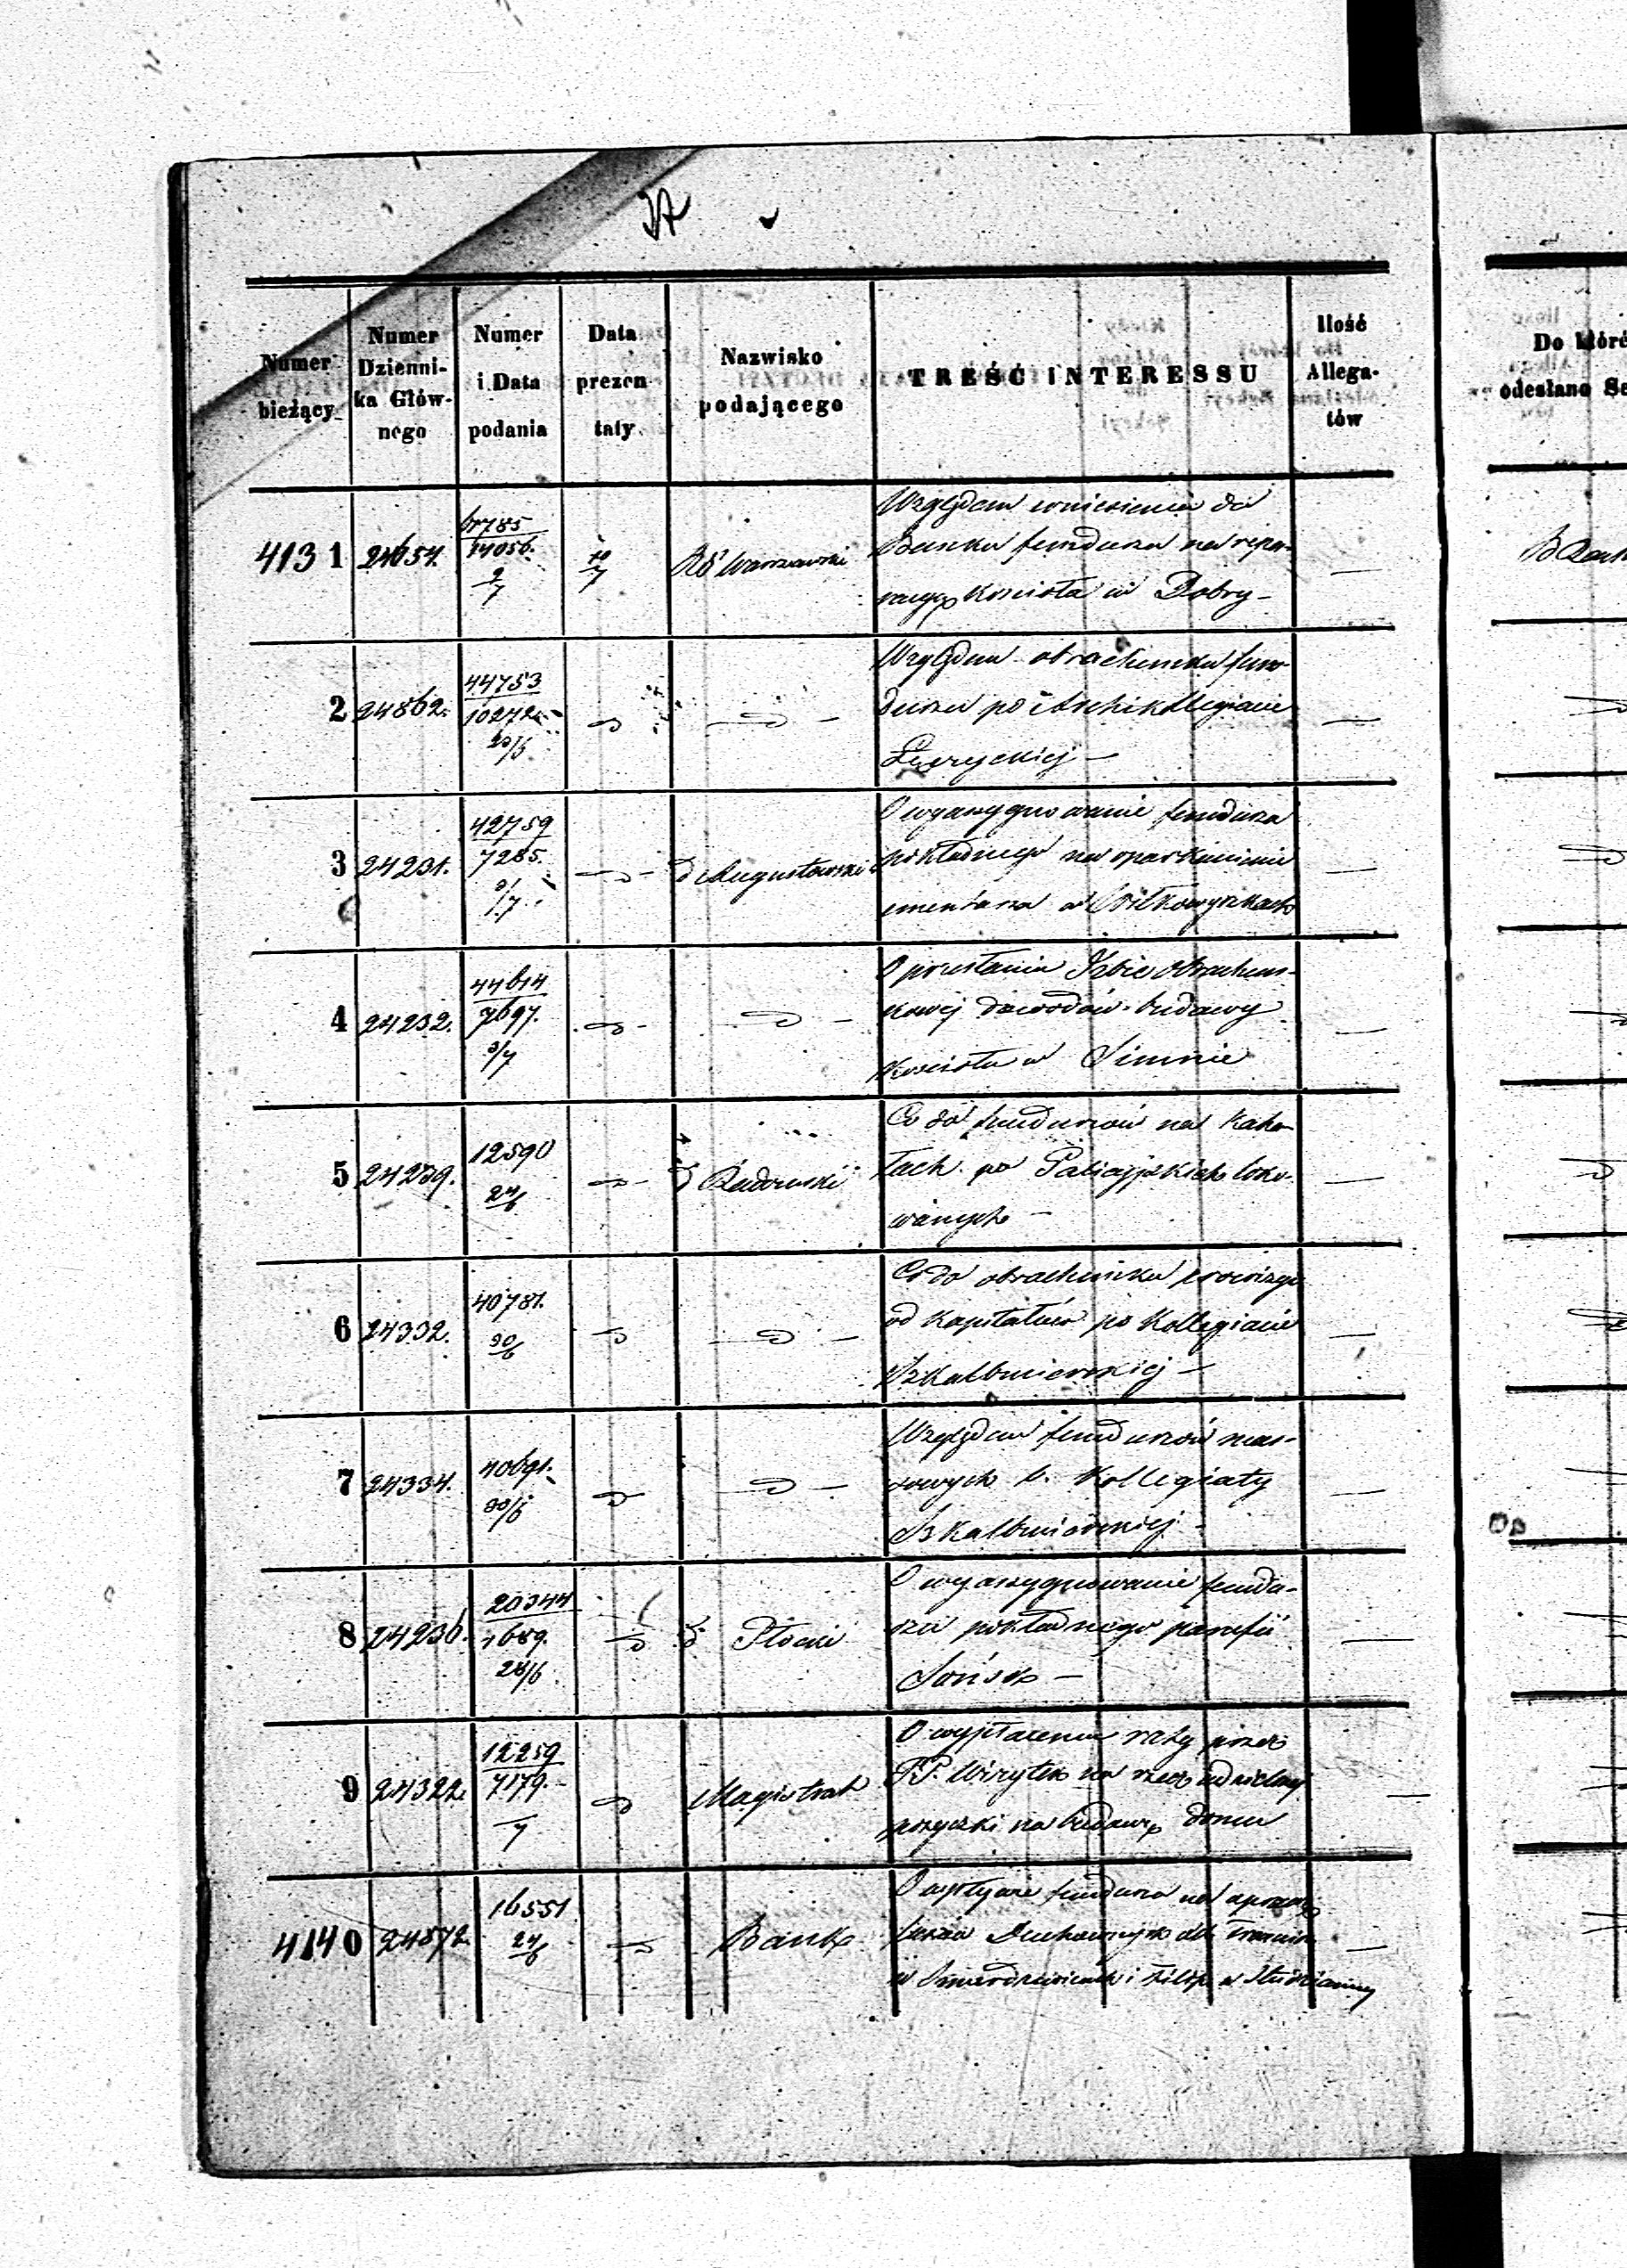 Numer bieżący
Numer Dzienni- ka Głów- nego
Numer i Data podania
Data prezen taty
Nazwisko podającego
TREŚĆ INTERESSU
Ilość Allega- tów
Do któré
odesłano Se
4131 24654. 14056. 9/7 10/7 Warszawski
Względem wniesienia do
Banku fundusza na repa-
racyę kościoła w Dobry –
2 24862. 44753 10272 20/5
Względem obrachunku fun-
duszu po Archikollegiacie
Łęczyckiej –
3 24231. 42759 7285. Augustowski
O wyasygnowanie fundusza
pokładnego na oparkanienie
cmentarza w Wiłkowyszkach
4 24232. 44614 7697. 3/7
O przesłaniu Izbie Obrachun-
kowej dowodów budowy
kościoła w Simnie
5 24239. 12590 24/6 Radomski
Co do funduszów na Kaha-
łach po Galicyjskich loko-
wanych –
6 24332. 40781. 30/6
Co do obrachunku prowizyi
od kapitałów po Kollegiacie
Szkalbmierskiej –
7 24334. 40691. 30/6
Względem funduszów mas-
sowych b. Kollegiaty
Szkalbmierskiej –
8 24236. 20344 1689. 28/6 Płocki
O wyasygnowanie fundu-
szu pokładnego parafii
Sońsk –
9 24322. 12259 7179. /7 Magistrat
O wypłaceniu raty przez
PP. Wizytek na rzecz udzielonej
pożyczki na budowę domu
4140 24872 16551 24/6 Bank
O wpływie fundusza na
Duchownych
w Smardzewicach i Filip. w Studzianny